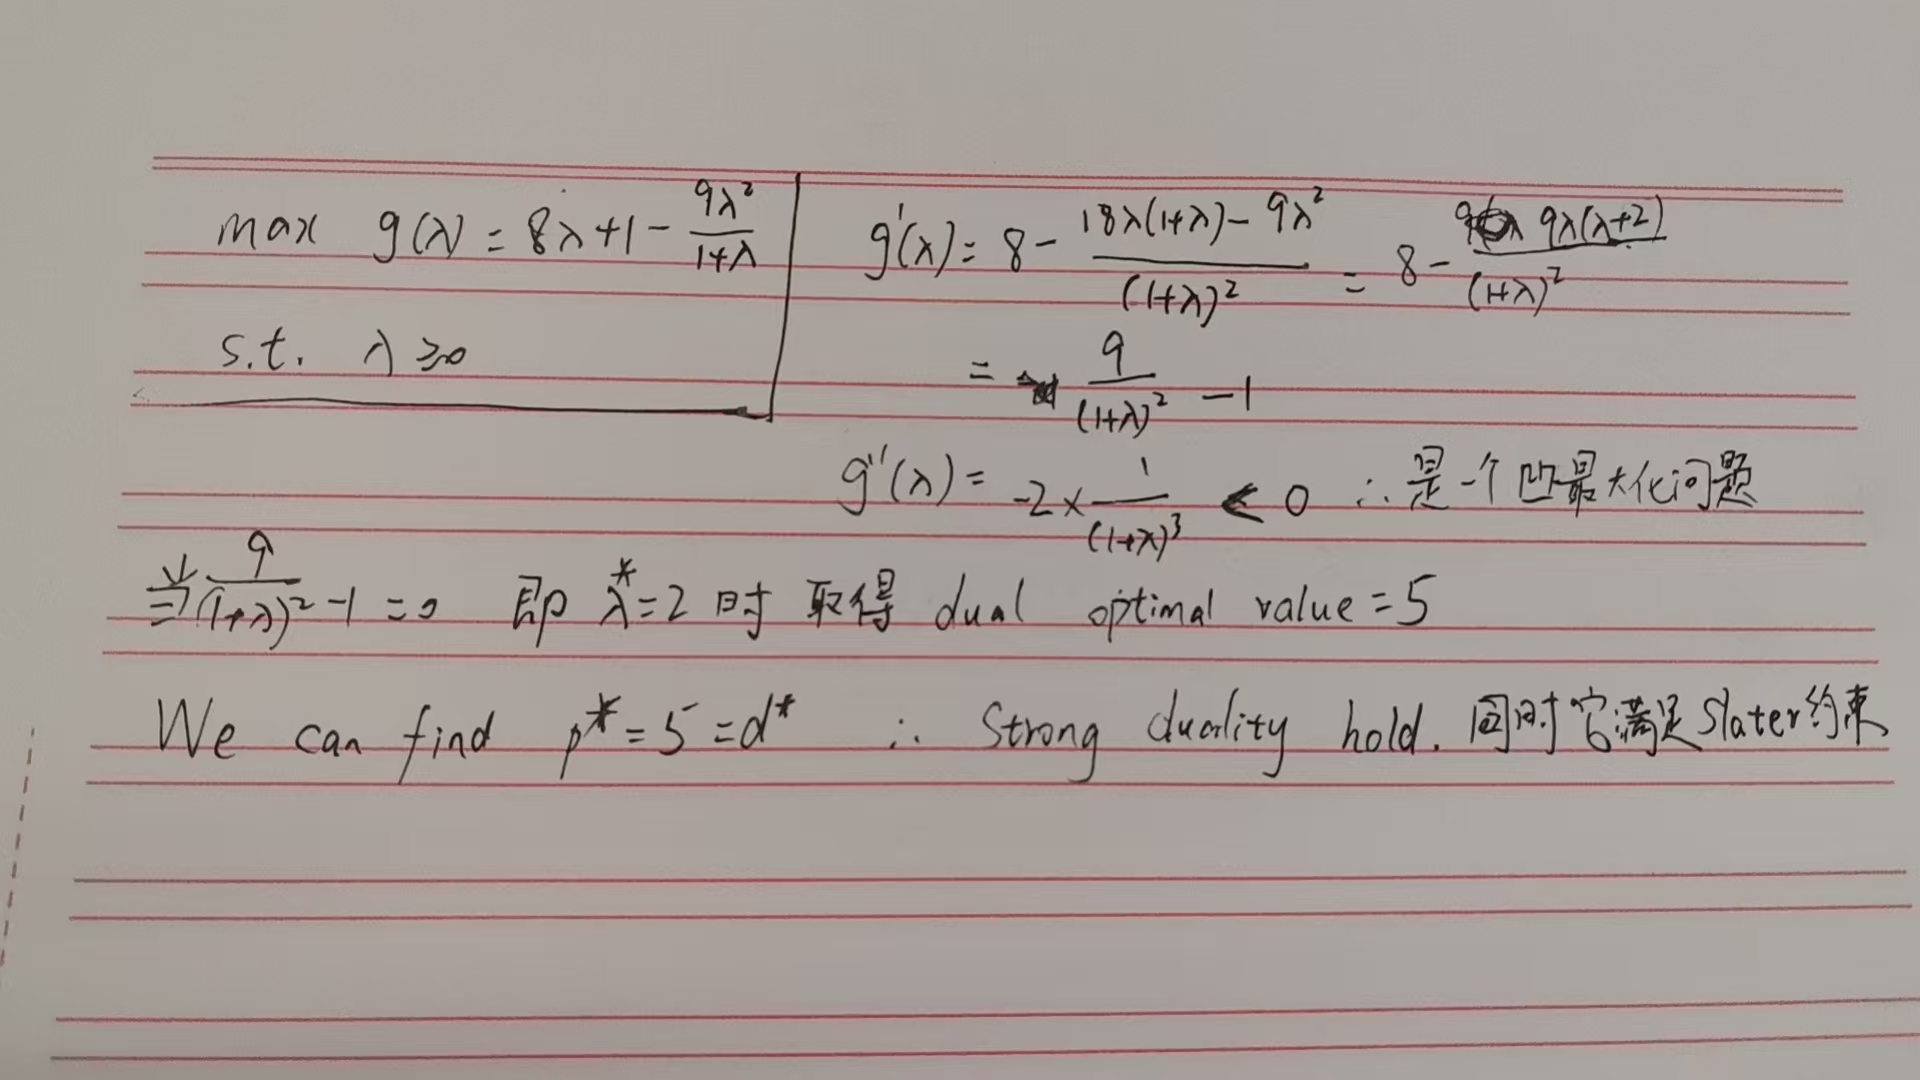 max g(λ) = 8λ+1 - 9λ²/(1+λ)
s.t. λ ≥0
g'(λ) = 8 - (18λ(1+λ) - 9λ²)/(1+λ)² = 8 - 9λ(λ+2)/(1+λ)²
= 9/(1+λ)² - 1
g''(λ) = -2 × 1/(1+λ)³ < 0 ∴ 是一个凹最大化问题
当 9/(1+λ)² - 1 = 0 即 λ* = 2 时 取得 dual optimal value = 5
We can find p* = 5 = d* ∴ Strong duality hold. 同时它满足Slater约束